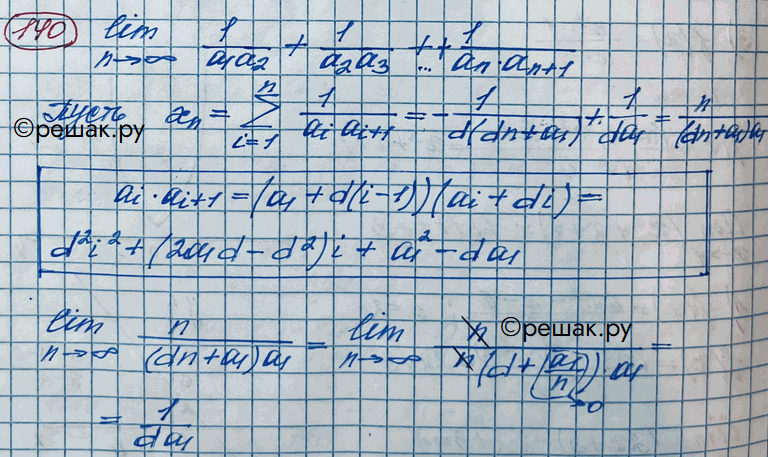 140 lim n→∞ 1/(a₁a₂) + 1/(a₂a₃) + ... + 1/(aₙ·aₙ₊₁)
Пусть xₙ = ∑ᵢ₌₁ⁿ 1/(aᵢ aᵢ₊₁) = - 1/(d(dn+a₁)) + 1/(da₁) = n/((dn+a₁)a₁)
©решак.ру
aᵢ · aᵢ₊₁ = (a₁ + d(i-1))(aᵢ + di) =
d²i² + (2a₁d - d²)i + a₁² - da₁
lim n→∞ n/((dn+a₁)a₁) = lim n→∞ n/(n(d+(a₁/n))·a₁) =
©решак.ру
→0
= 1/(da₁)